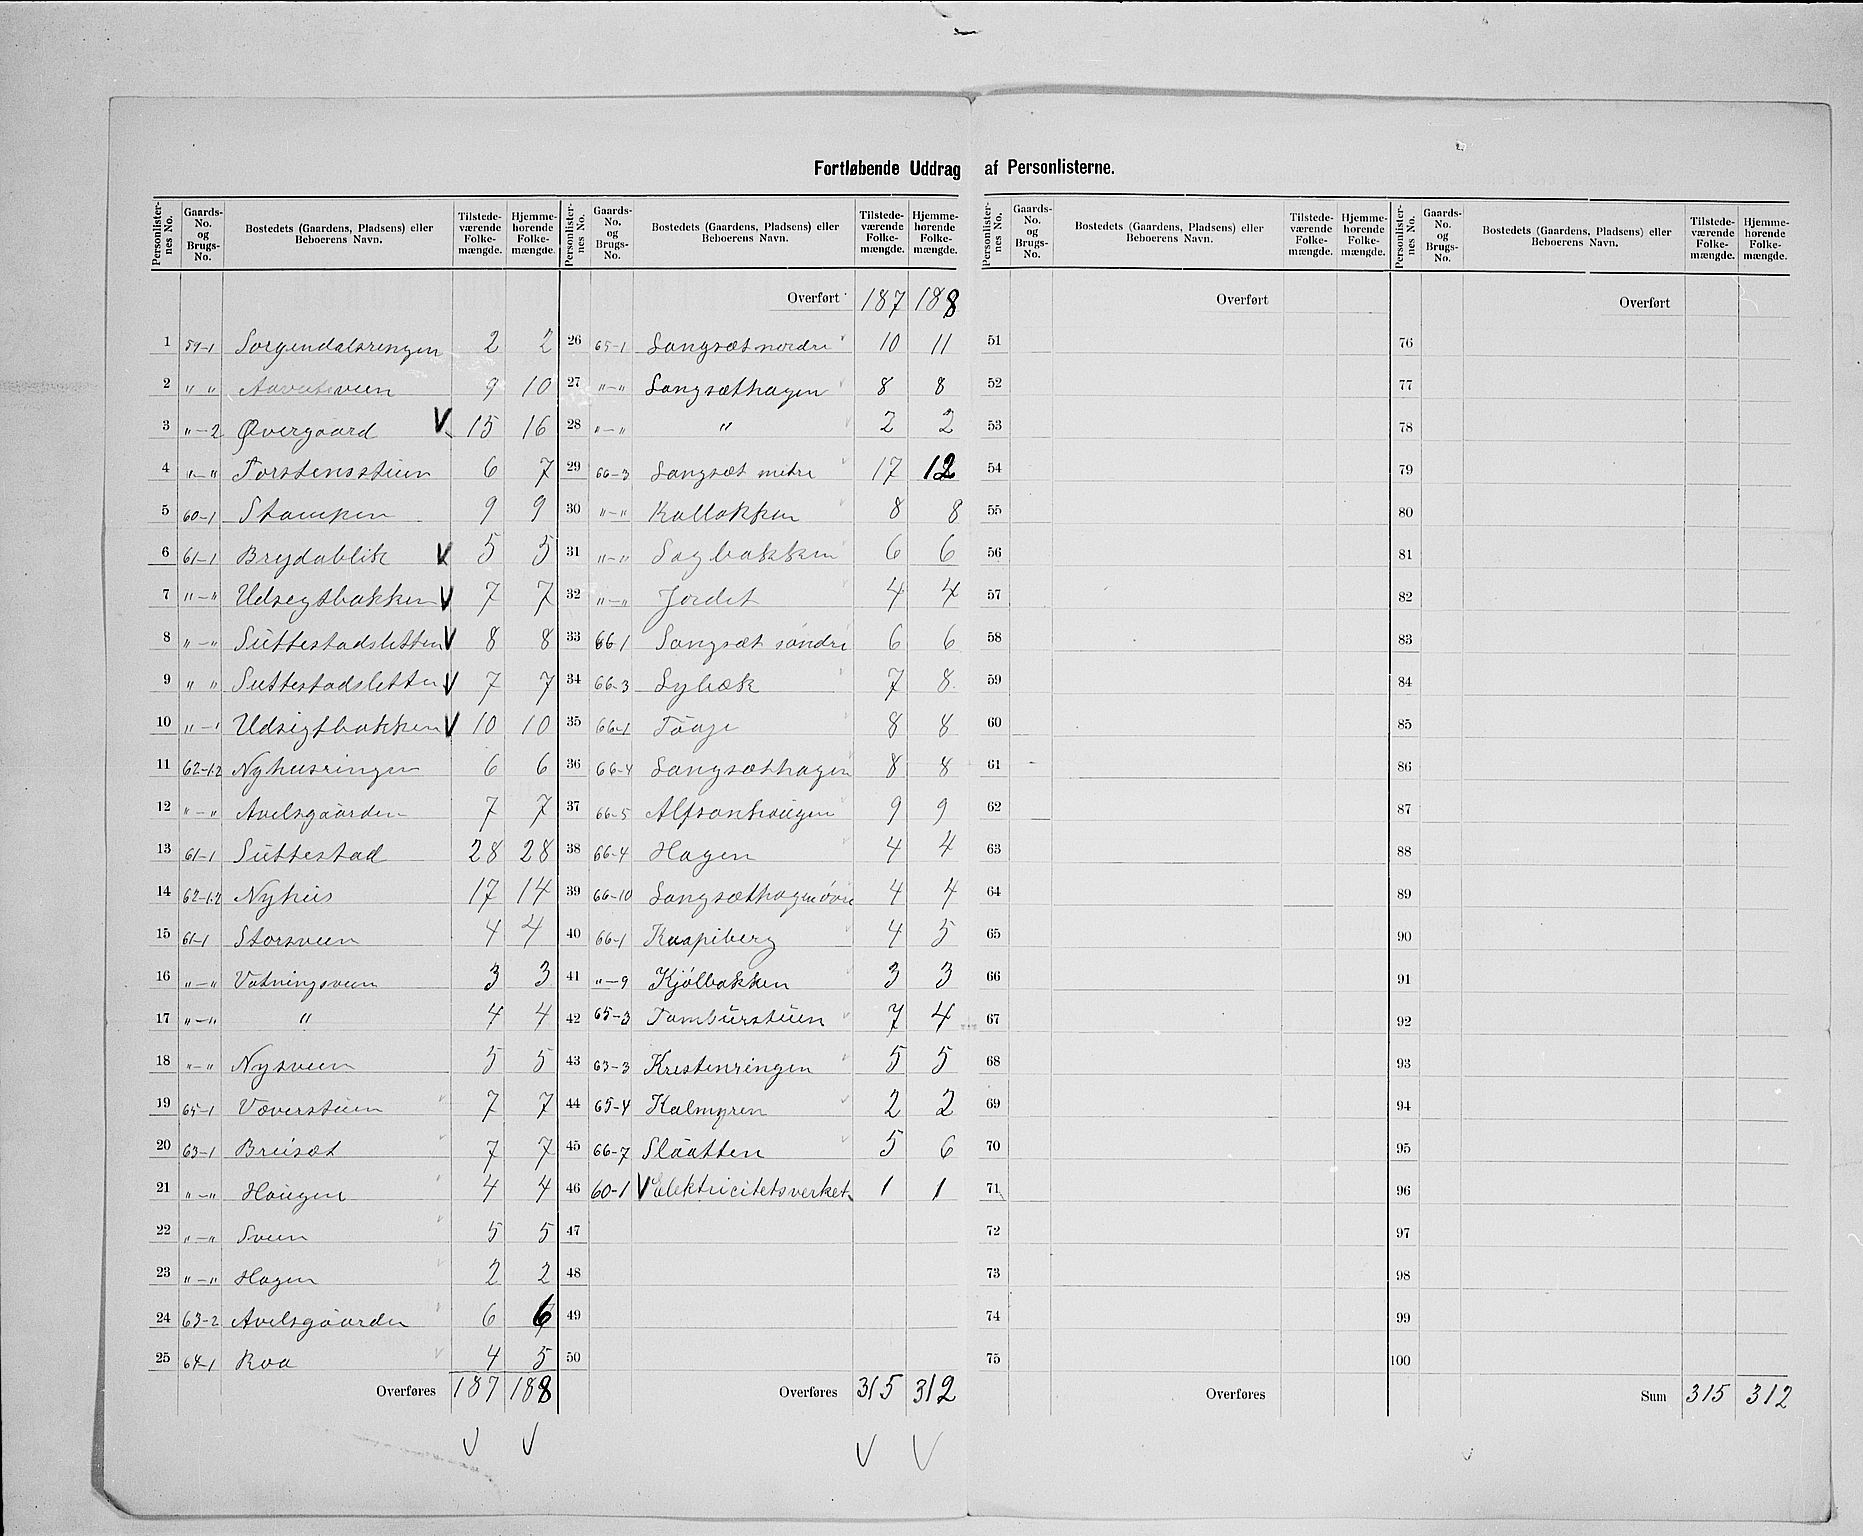 Fortløbende Uddrag af Personlisterne.
Personlister-nes No. | Gaards-No. og Brugs-No. | Bostedets (Gaardens, Pladsens) eller Beboerens Navn. | Tilstede-værende Folke-mængde. | Hjemme-hørende Folke-mængde.
1 59-1 Sorgendalsringen 2 2
2 " " 9 10
3 "-2 Øvergaard V 15 16
4 "-" Torstensstuen 6 7
5 60-1 Stampen 9 9
6 61-1 Brydablik V 5 5
7 "-" Udsegtbakken V 7 7
8 "-" Suttestadsletten V 8 8
9 " " Suttestadsletten V 7 7
10 "-1 Udsigtbakken V 10 10
11 62-1.2 Nyhusringen 6 6
12 "-" Avelsgaarden 7 7
13 61-1 Suttestad 28 28
14 62-1.2 Nyhus 17 14
15 61-1 Storsveen 4 4
16 "-" Vatningsveen 3 3
17 "-" " 4 4
18 "-" Nysveen 5 5
19 65-1 Væverstuen 7 7
20 63-1 Breisæt 7 7
21 "-" Haugen 4 4
22 "-" Sveen 5 5
23 "-" Hagen 2 2
24 63-2 Avelsgaarden 6 6
25 64-1 Roa 4 5
Overføres 187 188
Personlister-nes No. | Gaards-No. og Brugs-No. | Bostedets (Gaardens, Pladsens) eller Beboerens Navn. | Tilstede-værende Folke-mængde. | Hjemme-hørende Folke-mængde.
Overført 187 188
26 65-1 Langsæt nordre 10 11
27 "-" Langsæthagen 8 8
28 "-" " 2 2
29 66-3 Langsæt metre 17 12
30 "-" Kallakken 8 8
31 "-" Sagbakken 6 6
32 "-" Jordet 4 4
33 66 1 Langsæt søndre 6 6
34 66-3 Lybæk 7 8
35 66-1 8 8
36 66-4 Langsæthagen 8 8
37 66-5 Alfsonhaugen 9 9
38 66-4 Hagen 4 4
39 66-10 Langsæthagen øvre 4 4
40 66-1 Knapiberg 4 5
41 "-9 Kjølbakken 3 3
42 65-3 Tamburstuen 7 4
43 63-3 Kristenringen 5 5
44 65-4 Kalmyren 2 2
45 66-7 Slaatten 5 6
46 60-1 V Elektricitetsverket 1 1
47
48
49
50
Overføres 315 312
Personlister-nes No. | Gaards-No. og Brugs-No. | Bostedets (Gaardens, Pladsens) eller Beboerens Navn. | Tilstede-værende Folke-mængde. | Hjemme-hørende Folke-mængde.
Overført
51
52
53
54
55
56
57
58
59
60
61
62
63
64
65
66
67
68
69
70
71
72
73
74
75
Overføres
Personlister-nes No. | Gaards-No. og Brugs-No. | Bostedets (Gaardens, Pladsens) eller Beboerens Navn. | Tilstede-værende Folke-mængde. | Hjemme-hørende Folke-mængde.
Overført
76
77
78
79
80
81
82
83
84
85
86
87
88
89
90
91
92
93
94
95
96
97
98
99
100
Sum 315 312